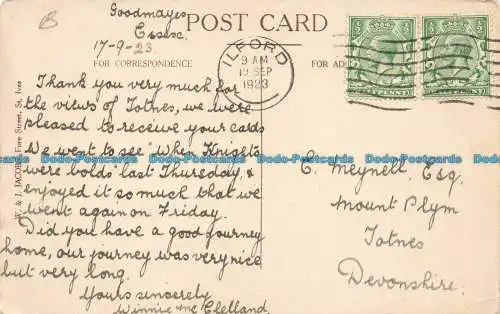 B
Goodmayes
Essex.
17-9-23.
POST CARD
FOR CORRESPONDENCE
FOR AD
ILFORD
9 AM
SEP
1923
Thank you very much for
the views of Totnes, we were
pleased to receive your cards
We went to see "When Knights
were bolds" last Thursday, &
enjoyed it so much that we
went again on Friday.
Did you have a good journey
home, our journey was very nice
but very long.
Yours sincerely
Winnie McClelland.
E. Meynell, Esq
Mount Plym
Totnes
Devonshire.
Fore Street, St. Ives
Dodo-Postcards Dodo-Postcards Dodo-Postcards Dodo-Postcards